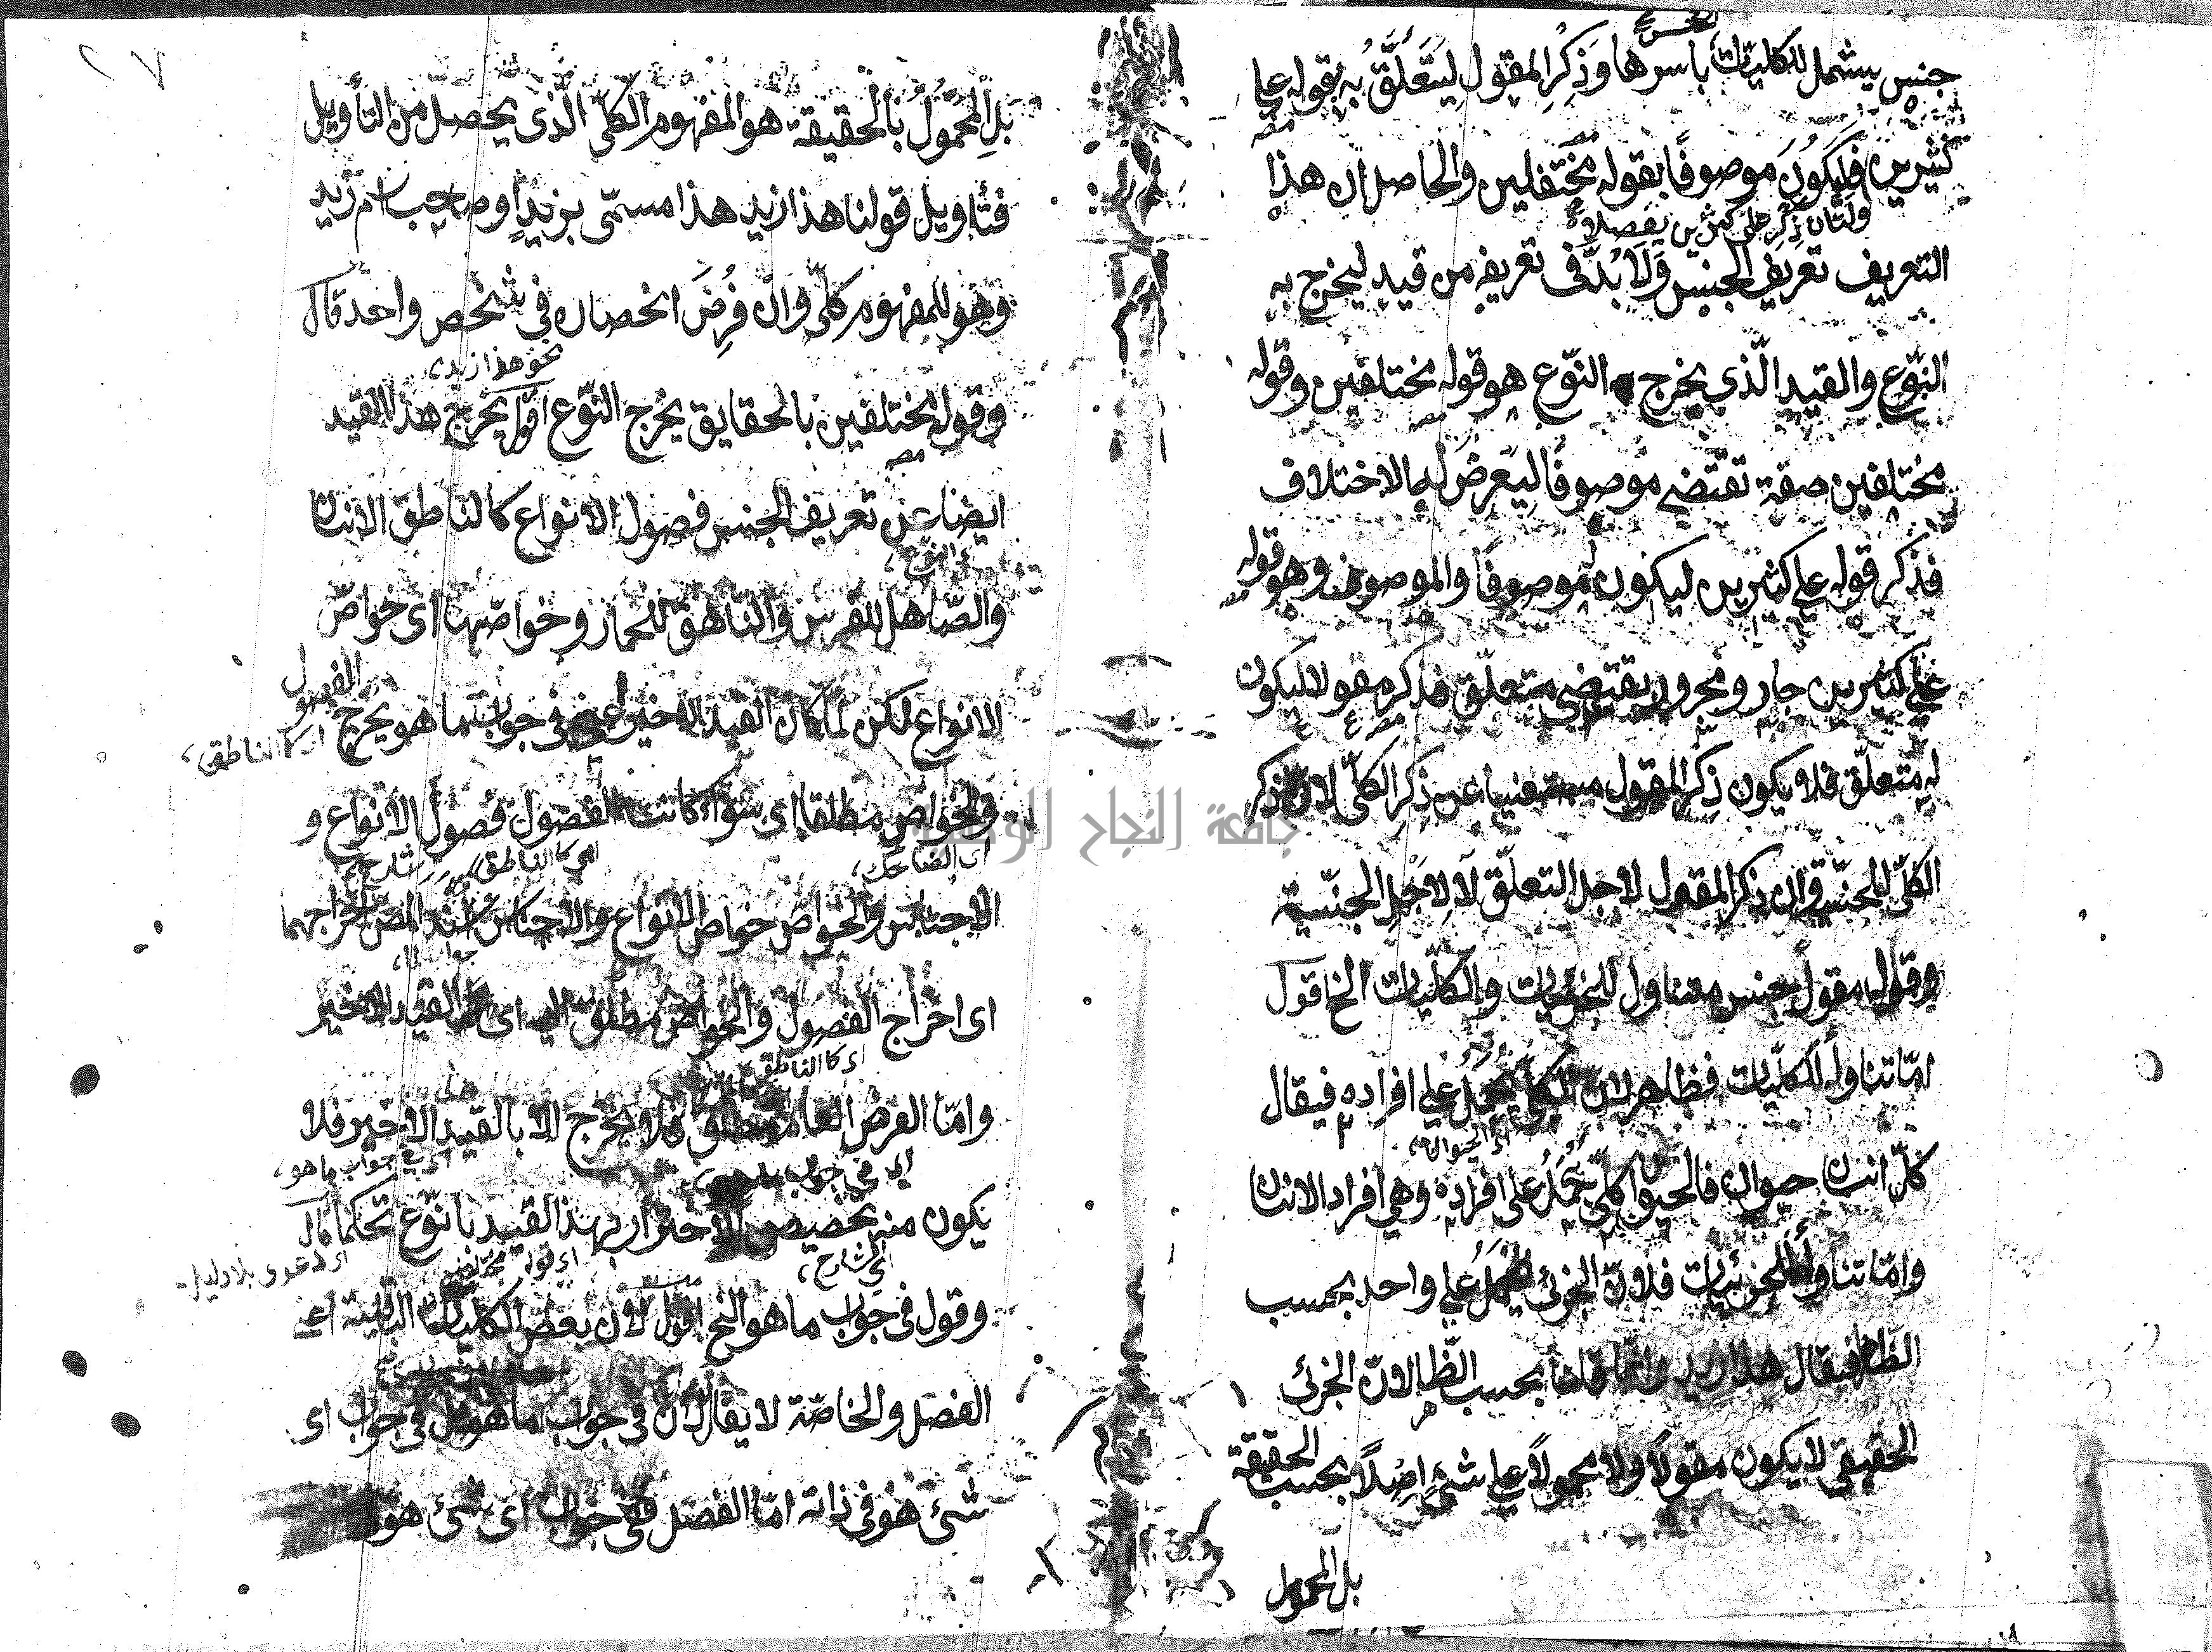 جنس يشمل للكليّات باسرها وَذِكْرِ المقول لِيَتَعَلَّقَ به بقوله على
كثيرين فليَكُونَ موصوفًا بقوله مختلفين والحاصل ان هذا
التعريف تعريف الجنس وَلَا بُدَّ فى تعريفه من قيدٍ ليخرج به
النّوع والقيد الّذى يخرج النّوع هو قوله مختلفين وقوله
مختلفين صفة تقتضى موصوفًا ليَعْرِضَ له الاختلاف
فذكر قوله على كثيرين ليكون موصوفًا والموصوف وهو قوله
على كثيرين جار ومجرور يقتضى متعلّق فذكره مقولا ليكون
له متعلّق فلا يكون ذِكْرُ المقول مستغنيا عن ذِكْرِ الكلّى لانّ ذكر
الكلّى للجنسيّة وان ذكر المقول لاجل التعلّق لَا لِاَجْلِ الجنسيّة
وقوله مقول جنس متناول للجزئيات والكلّيات الخ اقول
امّا تناول الكلّيات فظاهر لان الكلى يُحْمَلُ على افراده فيقال
اى الحيوان
كلّ انسان حيوان فالحيوان كلّى يُحْمَلُ على افراده وهى افراد الانسان
وامّا تناول الجزئيات فلانّ الجزئى يُحْمَلُ على واحد بحسب
الظاهر فيقال هذا زيد وانّما قلنا بحسب الظّاهر لانّ الجزئى
الحقيقى لا يكون مقولًا ولا محمولًا على شئٍ اصلًا بحسب الحقيقة
بل المحمول
بَلِ المَحْمُولُ بالحقيقة هو المفهوم الكلّى الّذى يحصل من التأويل
فتأويل قولنا هذا زيد هذا مسمّى بزيدٍ او صاحب اسم زيد
وهو للمفهوم كلّى وان فُرِضَ انحصاره فى شخص واحد قال
نحو هذا زيد
وقوله مختلفين بالحقايق يخرج النّوع اقول يخرج هذا القيد
ايضا عن تعريف الجنس فصول الانواع كالناطق الانسان
والصّاهل للفرس والنّاهق للحمار وخواصّها اى خواصّ
الانواع لكن لمّا كان القيد الاخير اعنى فى جواب ما هو يخرج الفصول
اى كالناطق
والخواصّ مطلقا اى سواء كانت الفصول فصول الانواع و
اى الضاحك
الاجناس والخواصّ خواص الانواع والاجناس اسند المصّ اخراجهما
اى اخراج الفصول والخواص مطلق اليه اى الى القيد الاخير
اى كالناطق
وامّا العرض العام مطلق فلا يخرج الا بالقيد الاخير فلا
اى فى جواب ما هو
يكون منه تخصيص الاحتراز بهذا القيد بالنّوع تحكّما قال
اى دعوى بلا دليل
اى الشارح
وقول فى جواب ما هو الخ اقول لانّ بعض الكليات الباقية اعنى
الفصل والخاصّة لا يقالان فى جواب ما هو بل فى جواب اى
شئ هو فى ذاته امّا الفصل ففى جواب اى شئ هو